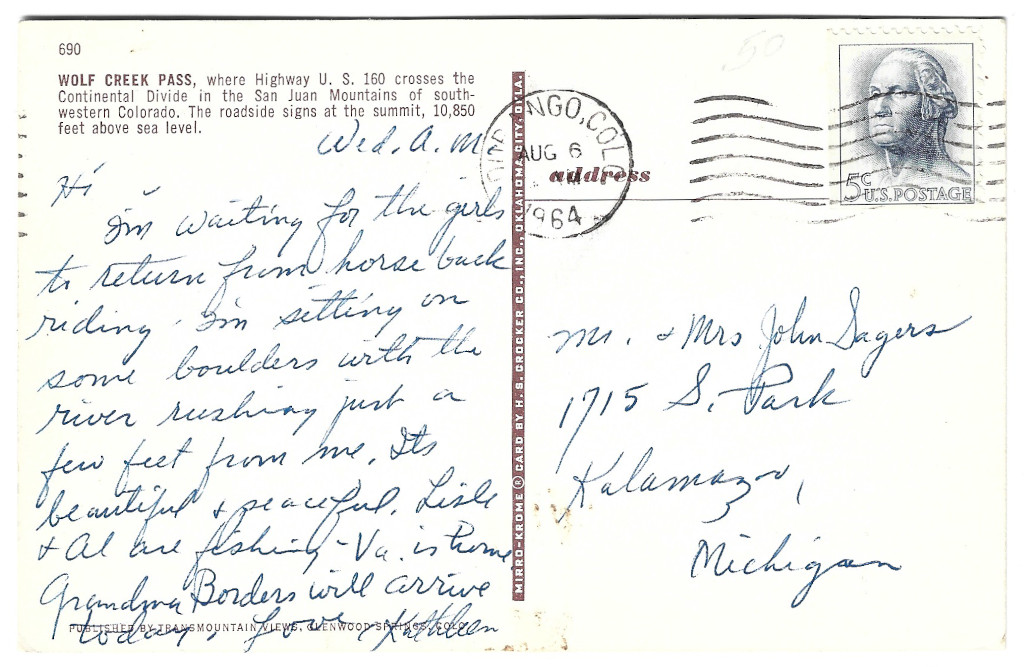 690
WOLF CREEK PASS, where Highway U. S. 160 crosses the
Continental Divide in the San Juan Mountains of south-
western Colorado. The roadside signs at the summit, 10,850
feet above sea level.
Wed. A.M.
Hi –
I'm waiting for the girls
to return from horse back
riding. I'm sitting on
some boulders with the
river rushing just a
few feet from me. Its
beautiful & peaceful. Lisle
& Al are fishing - Va. is home
Grandma Borders will arrive
today. Love Kathleen
PUBLISHED BY TRANSMOUNTAIN VIEWS, GLENWOOD SPRINGS, COLO.
MIRRO-KROME® CARD BY H. S. CROCKER CO., INC., OKLAHOMA CITY, OKLA.
50
DURANGO, COLO.
AUG 6
1964
address
5c
U.S. POSTAGE
Mr. & Mrs John Sagers
1715 S. Park
Kalamazoo,
Michigan